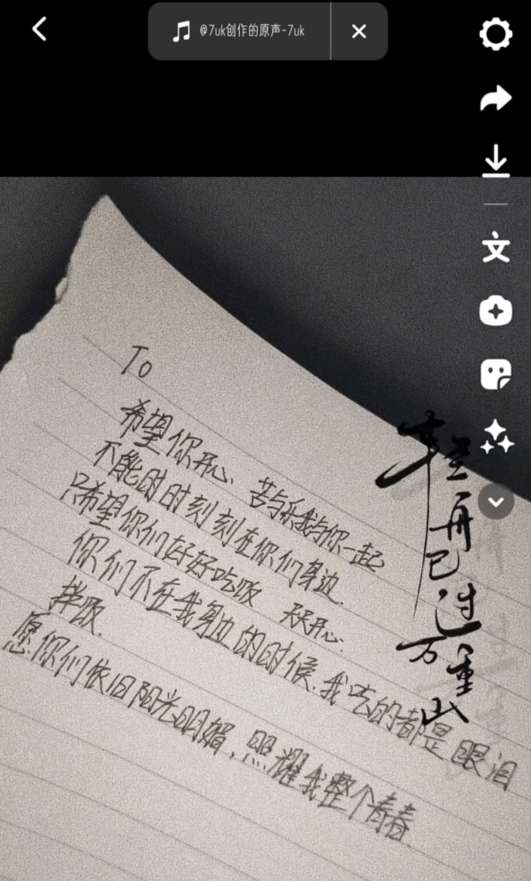 @7uk创作的原声-7uk
文
To
希望你开心、苦与乐我与你一起
不能时时刻刻在你们身边.
只希望你们好好吃饭 天天开心.
你们不在我身边的时候.我吃的都是眼泪
拌饭.
愿你们依旧阳光明媚,照耀我整个青春.
轻舟已过万重山